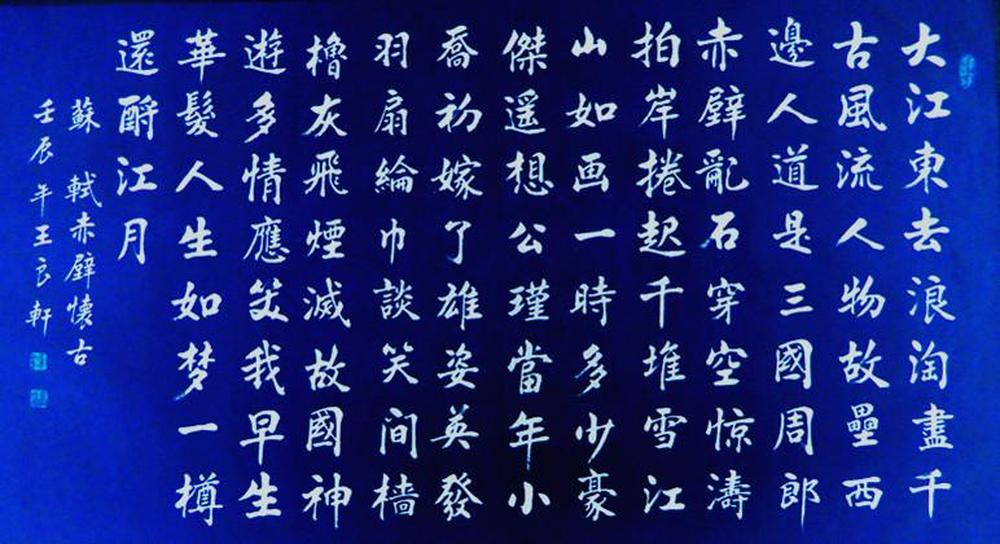 大江東去浪淘盡千
古風流人物故壘西
邊人道是三國周郎
赤壁亂石穿空惊濤
拍岸捲起千堆雪江
山如画一時多少豪
傑遥想公瑾當年小
喬初嫁了雄姿英發
羽扇綸巾談笑间檣
櫓灰飛煙滅故國神
遊多情應笑我早生
華髮人生如梦一樽
還酹江月
蘇軾赤壁懷古
壬辰年王良軒